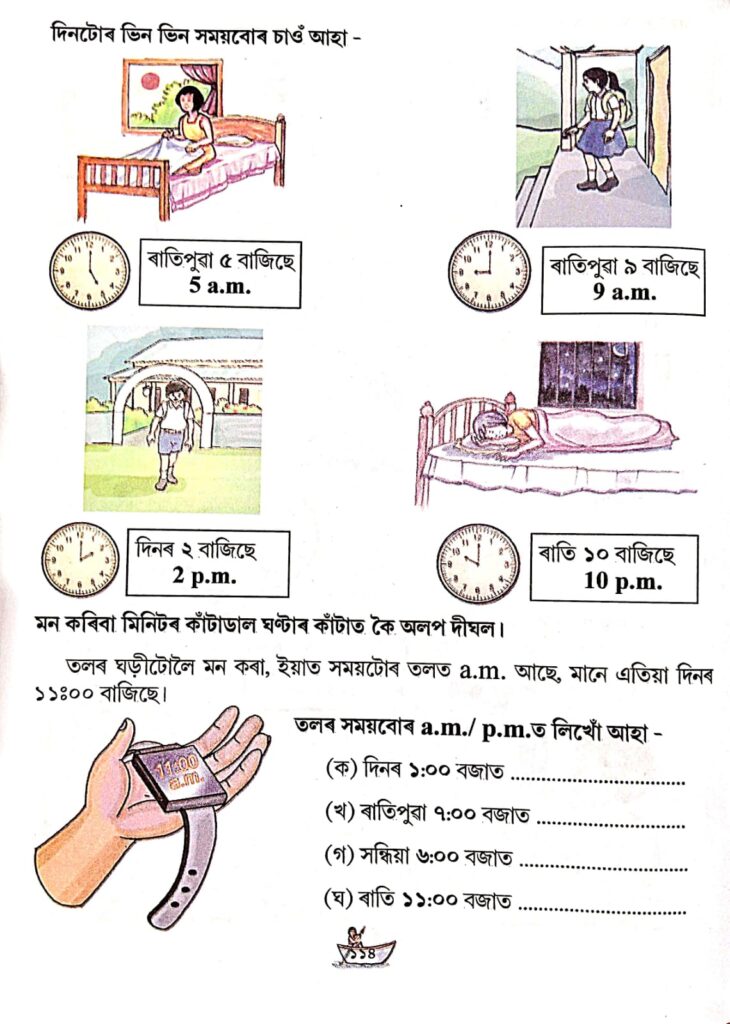 দিনটোৰ ভিন ভিন সময়বোৰ চাওঁ আহা -
ৰাতিপুৱা ৫ বাজিছে
5 a.m.
ৰাতিপুৱা ৯ বাজিছে
9 a.m.
দিনৰ ২ বাজিছে
2 p.m.
ৰাতি ১০ বাজিছে
10 p.m.
মন কৰিবা মিনিটৰ কাঁটাডাল ঘণ্টাৰ কাঁটাত কৈ অলপ দীঘল।
তলৰ ঘড়ীটোলৈ মন কৰা, ইয়াত সময়টোৰ তলত a.m. আছে, মানে এতিয়া দিনৰ
১১ঃ০০ বাজিছে।
11:00
a.m.
তলৰ সময়বোৰ a.m./ p.m.ত লিখোঁ আহা -
(ক) দিনৰ ১:০০ বজাত ................................
(খ) ৰাতিপুৱা ৭:০০ বজাত ...........................
(গ) সন্ধিয়া ৬:০০ বজাত ..............................
(ঘ) ৰাতি ১১:০০ বজাত ..............................
১১৪